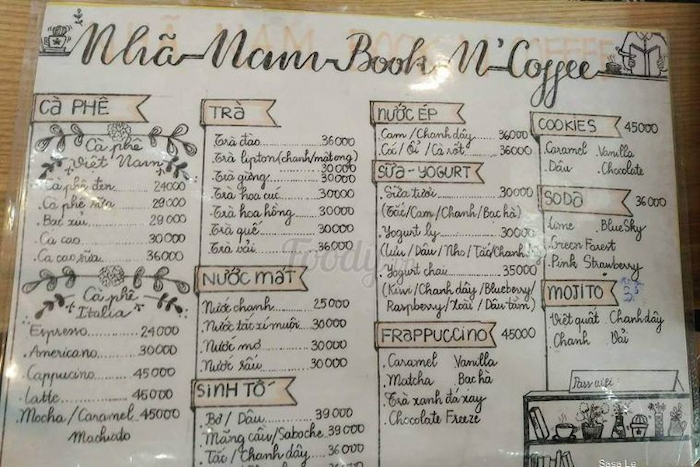 Nhã Nam Book N' Coffee
CÀ PHÊ
Cà phê
Việt Nam
Cà phê đen 24000
Cà phê sữa 29000
Bạc xỉu 29000
Ca cao 30000
Ca cao sữa 36000
Cà phê
Italia
Espresso 24000
Americano 30000
Cappucino 45000
Latte 45000
Mocha/Caramel 45000
Machiado
TRÀ
Trà đào 36000
Trà lipton (chanh/mật ong) 30000
Trà gừng 30000
Trà hoa cúc 30000
Trà hoa hồng 30000
Trà quế 30000
Trà vải 36000
NƯỚC MÁT
Nước chanh 25000
Nước tắc xí muội 30000
Nước mơ 30000
Nước sấu 30000
SINH TỐ
Bơ/ Dâu 39000
Mãng cầu/Saboche 39000
Tắc/ Chanh dây 36000
NƯỚC ÉP
Cam/Chanh dây 36000
Cóc/ Ổi/ Cà rốt 36000
SỮA-YOGURT
Sữa tươi 30000
(Tắc/Cam/Chanh/Bạc hà)
Yogurt ly 30000
(Lựu/Dâu/Nho/Tắc/Chanh)
Yogurt chai 35000
(Kiwi/Chanh dây/Blueberry/
Raspberry/Xoài/Dâu tằm)
FRAPPUCCINO 45000
Caramel Vanilla
Matcha Bạc hà
Trà xanh đá xay
Chocolate Freeze
COOKIES 45000
Caramel Vanilla
Dâu Chocolate
SODA 36000
Lime Blue Sky
Green Forest
Pink Strawberry
MOJITO
Việt quất Chanh dây
Chanh Vải
Pass wifi
Foody
Sasa Le